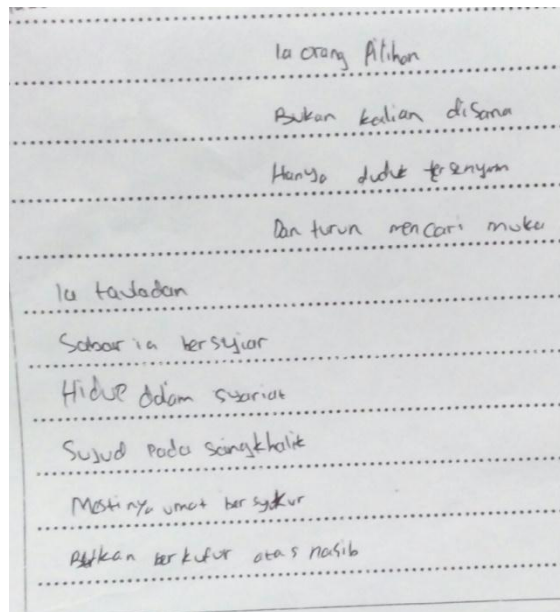 Ia orang Pilihan
Bukan kalian disana
Hanya duduk tersenyum
Dan turun mencari muka
Ia tauladan
Sabar ia bersyiar
Hidup dalam syariat
Sujud pada sangkhalik
Mestinya umat bersyukur
Bukan berkufur atas nasib